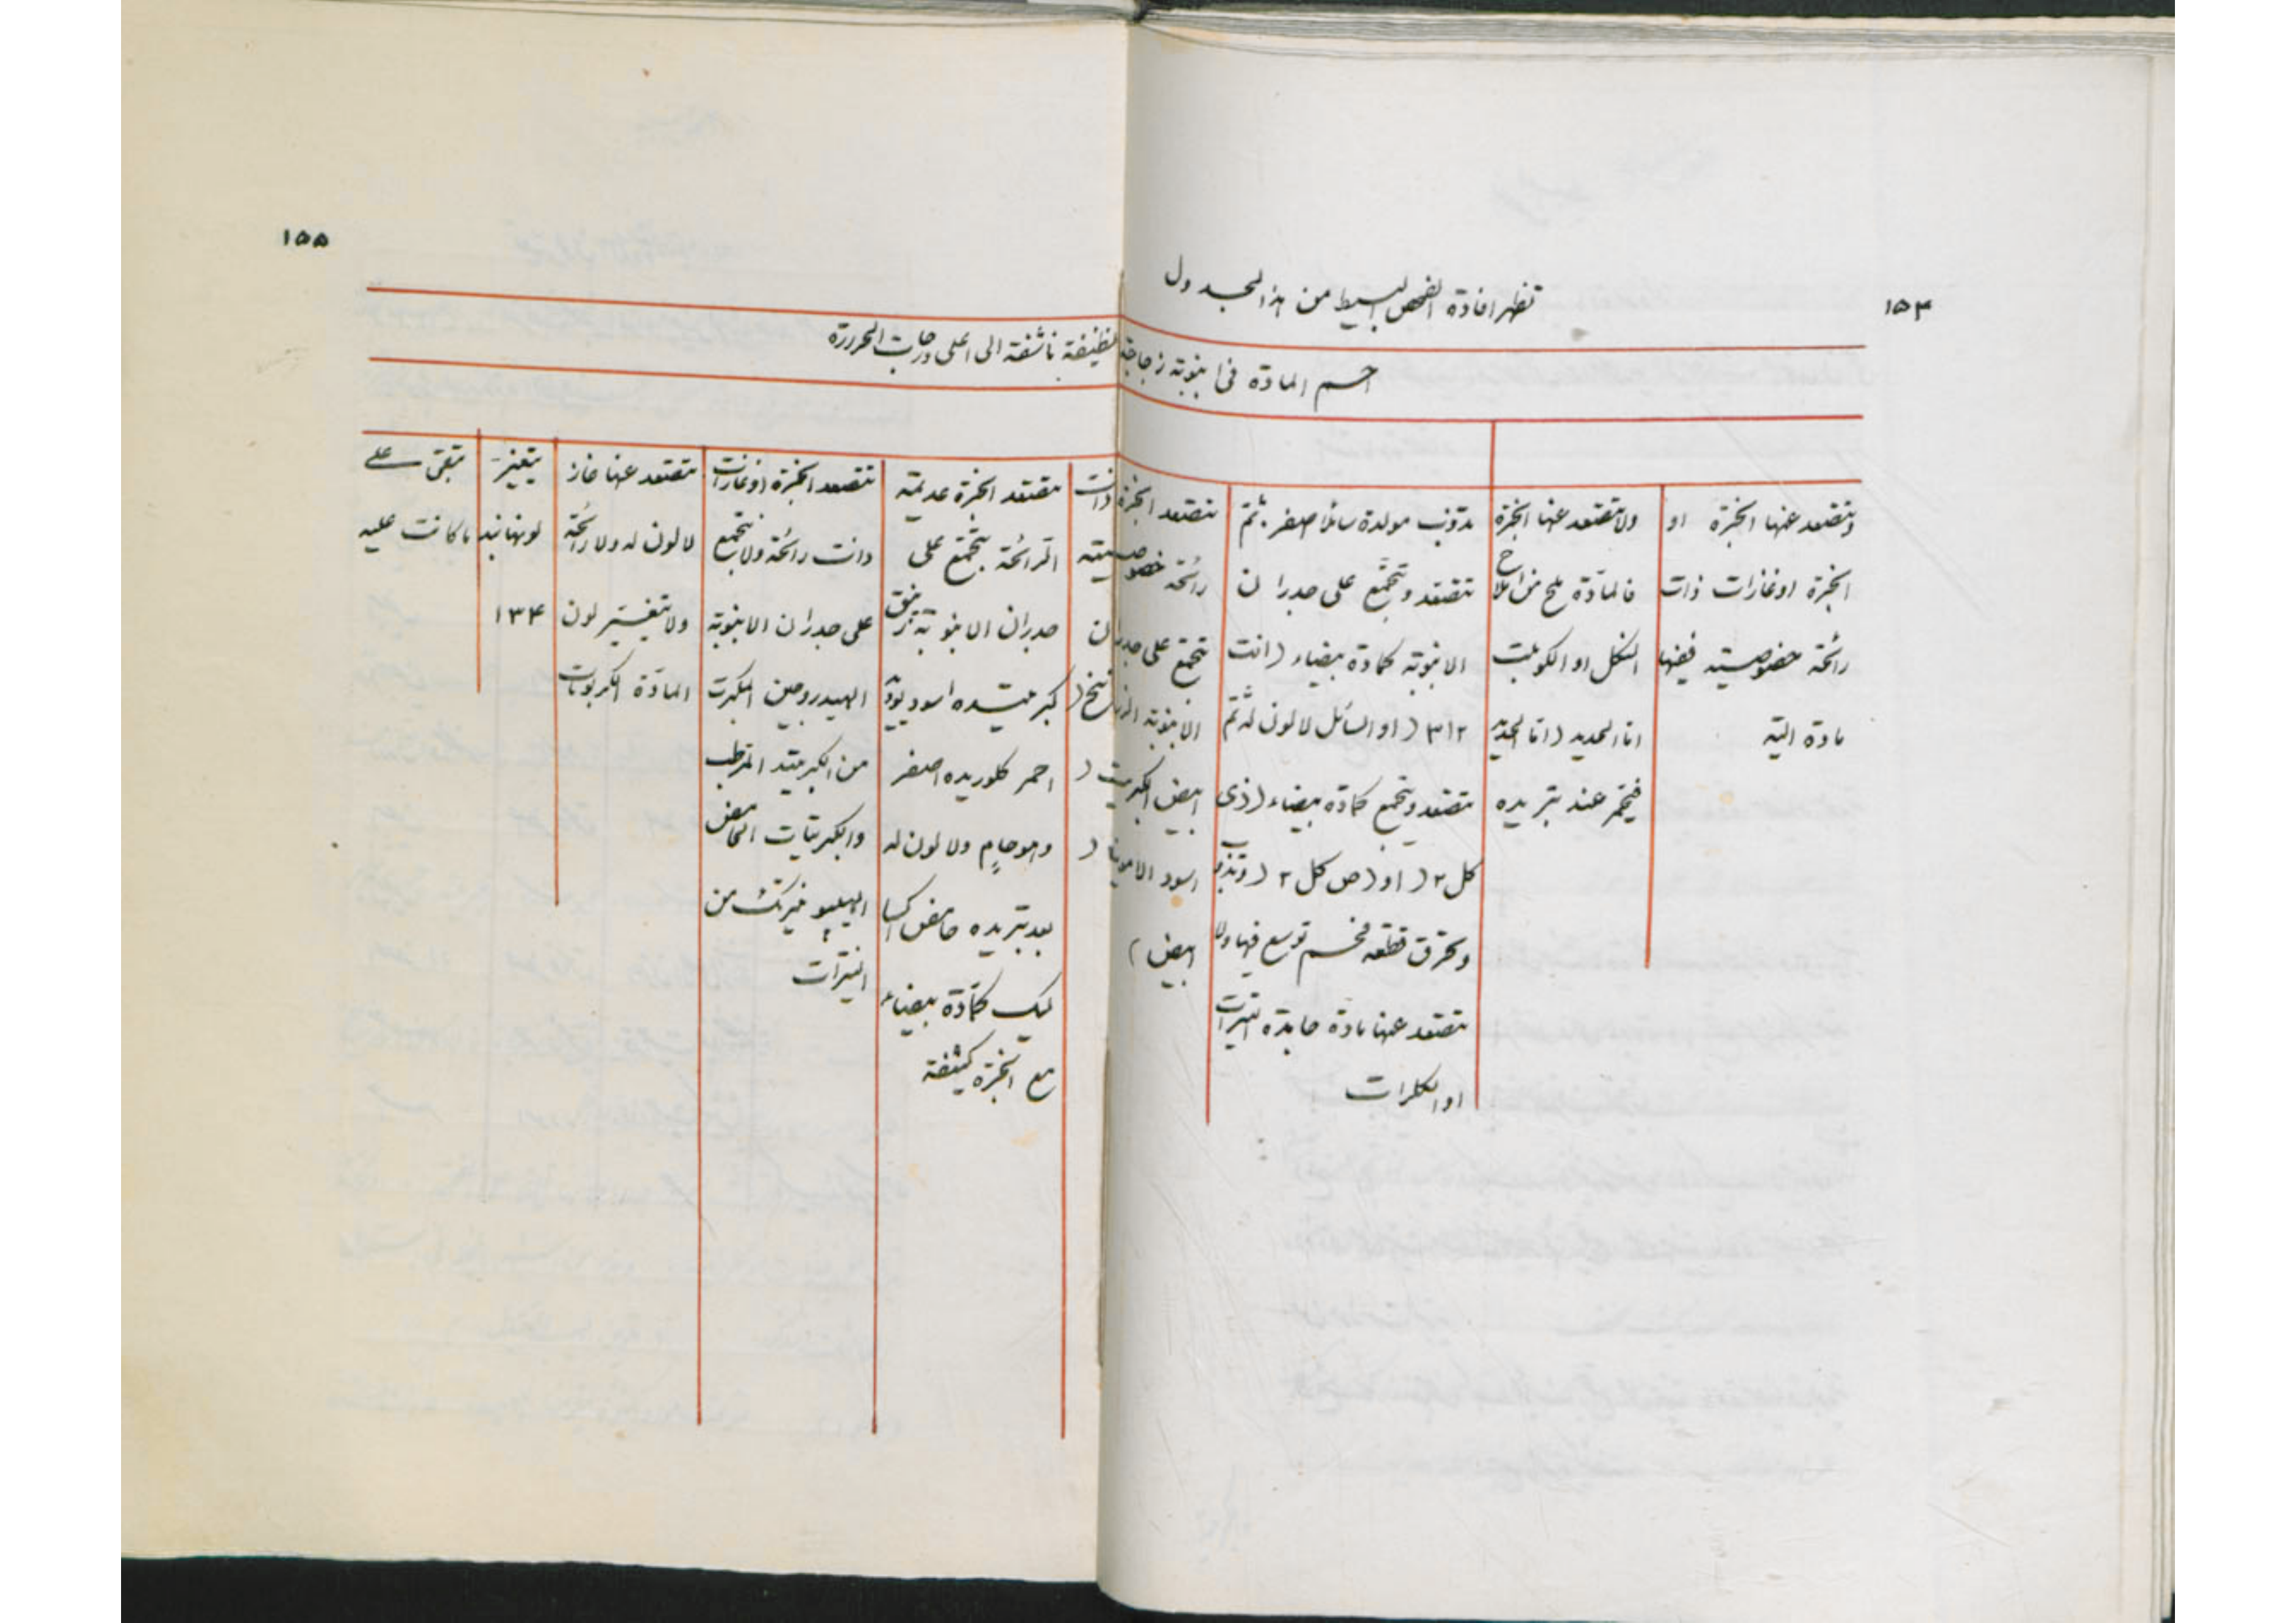 ١٥٤
تظهر افادة الفحص البسيط من هذا الجدول
احم المادة فى انبوبة زجاجية نظيفة ناشفة الى اعلى درجات الحرارة
وتتصعد عنها ابخرة او
ابخرة او غازات ذات
رائحة خصوصية ففيها
مادة الية
ولا تتصعد عنها ابخرة
فالمادة ملح من املاح
النكل او الكوبلت
اما الحديد (اما الحديد
فيحمر عند تبريده
تذوب مولدة سائلا اصفر ثم
تتصعد وتتجمع على جدران
الانبوبة كمادة بيضاء (انت
٢١٣) او السائل لا لون له ثم
تتصعد وتجمع كمادة بيضاء (ذى
كل ٢) او (ص كل ٢) وتذوب
وتحرق قطعة فحم توسع فيها ولا
تتصعد عنها مادة جامدة النيترات
او الكلرات
تتصعد ابخرة ذات
رائحة خصوصية
تتجمع على جدران
الانبوبة الزرنيخ (
ابيض الكبريت (
اسود الامونيا (
ابيض)
١٥٥
تتصعد ابخرة عديمة
الرائحة تتجمع على
جدران الانبوبة زيبق
كبريتيده اسود يوده
احمر كلوريده اصفر
وهو حامٍ ولا لون له
بعد تبريده حامض اكسا
ليك كمادة بيضاء
مع ابخرة كثيفة
تتصعد ابخرة او غازات
ذات رائحة ولا تتجمع
على جدران الانبوبة
الهيدروجين المكبرت
من الكبريتيد المرطب
والكبريتات الحامض
من
النيترات
تتصعد عنها غاز
لا لون له ولا رائحة
ولا يتغير لون
المادة الكربونات
يتغير
لونها نبد
١٣٤
تبقى على
ما كانت عليه